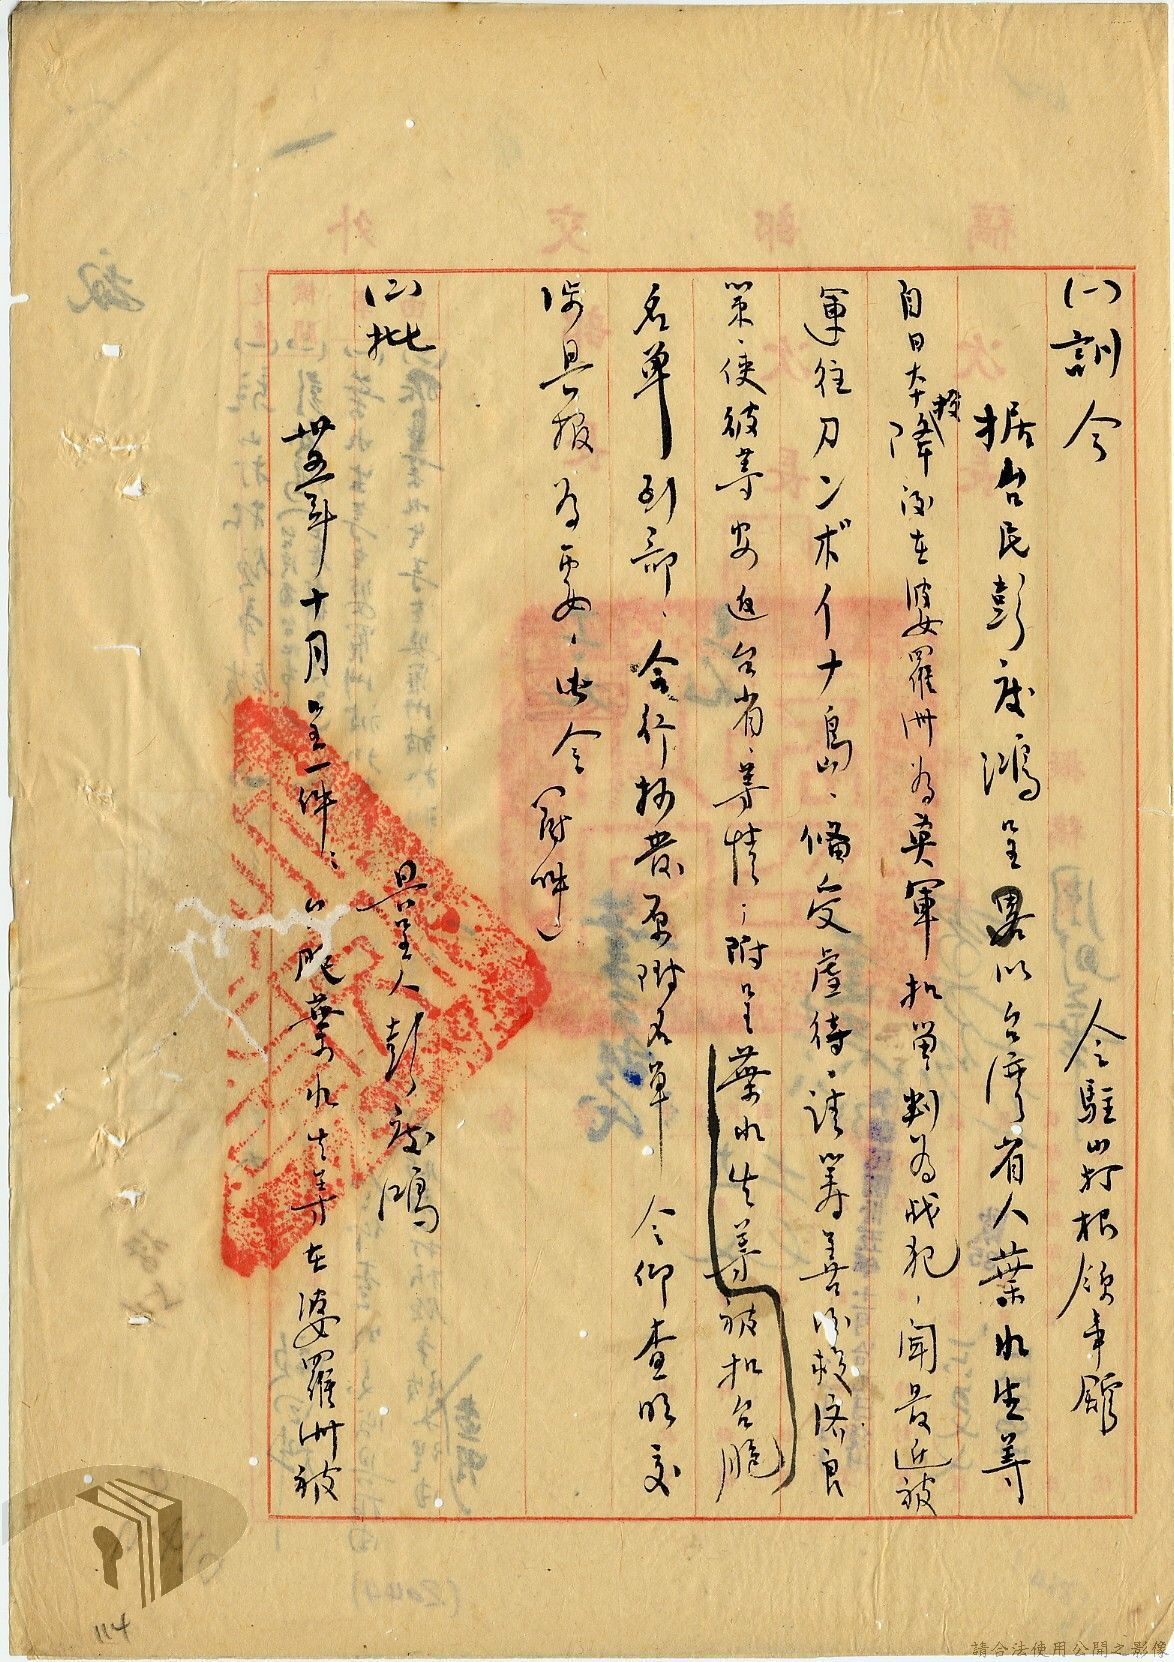 (一)訓令　令駐山打根領事館
據台民彭度鴻呈畧以台灣省人葉水生等
自日本投降後在婆羅洲為英軍扣留判為战犯、聞最近被
運往刀ンボイナ島、備受虐待、請籌善後救濟良
策、使彼等安返台省、等情；附呈葉水生等被扣台胞
名單到部、合行抄發原附名單　令仰查明交
涉具報為要、此令（附件）
(二)批　具呈人彭度鴻
卅五年十月呈一件：台胞葉水生等在婆羅洲被
114
請合法使用公開之影像